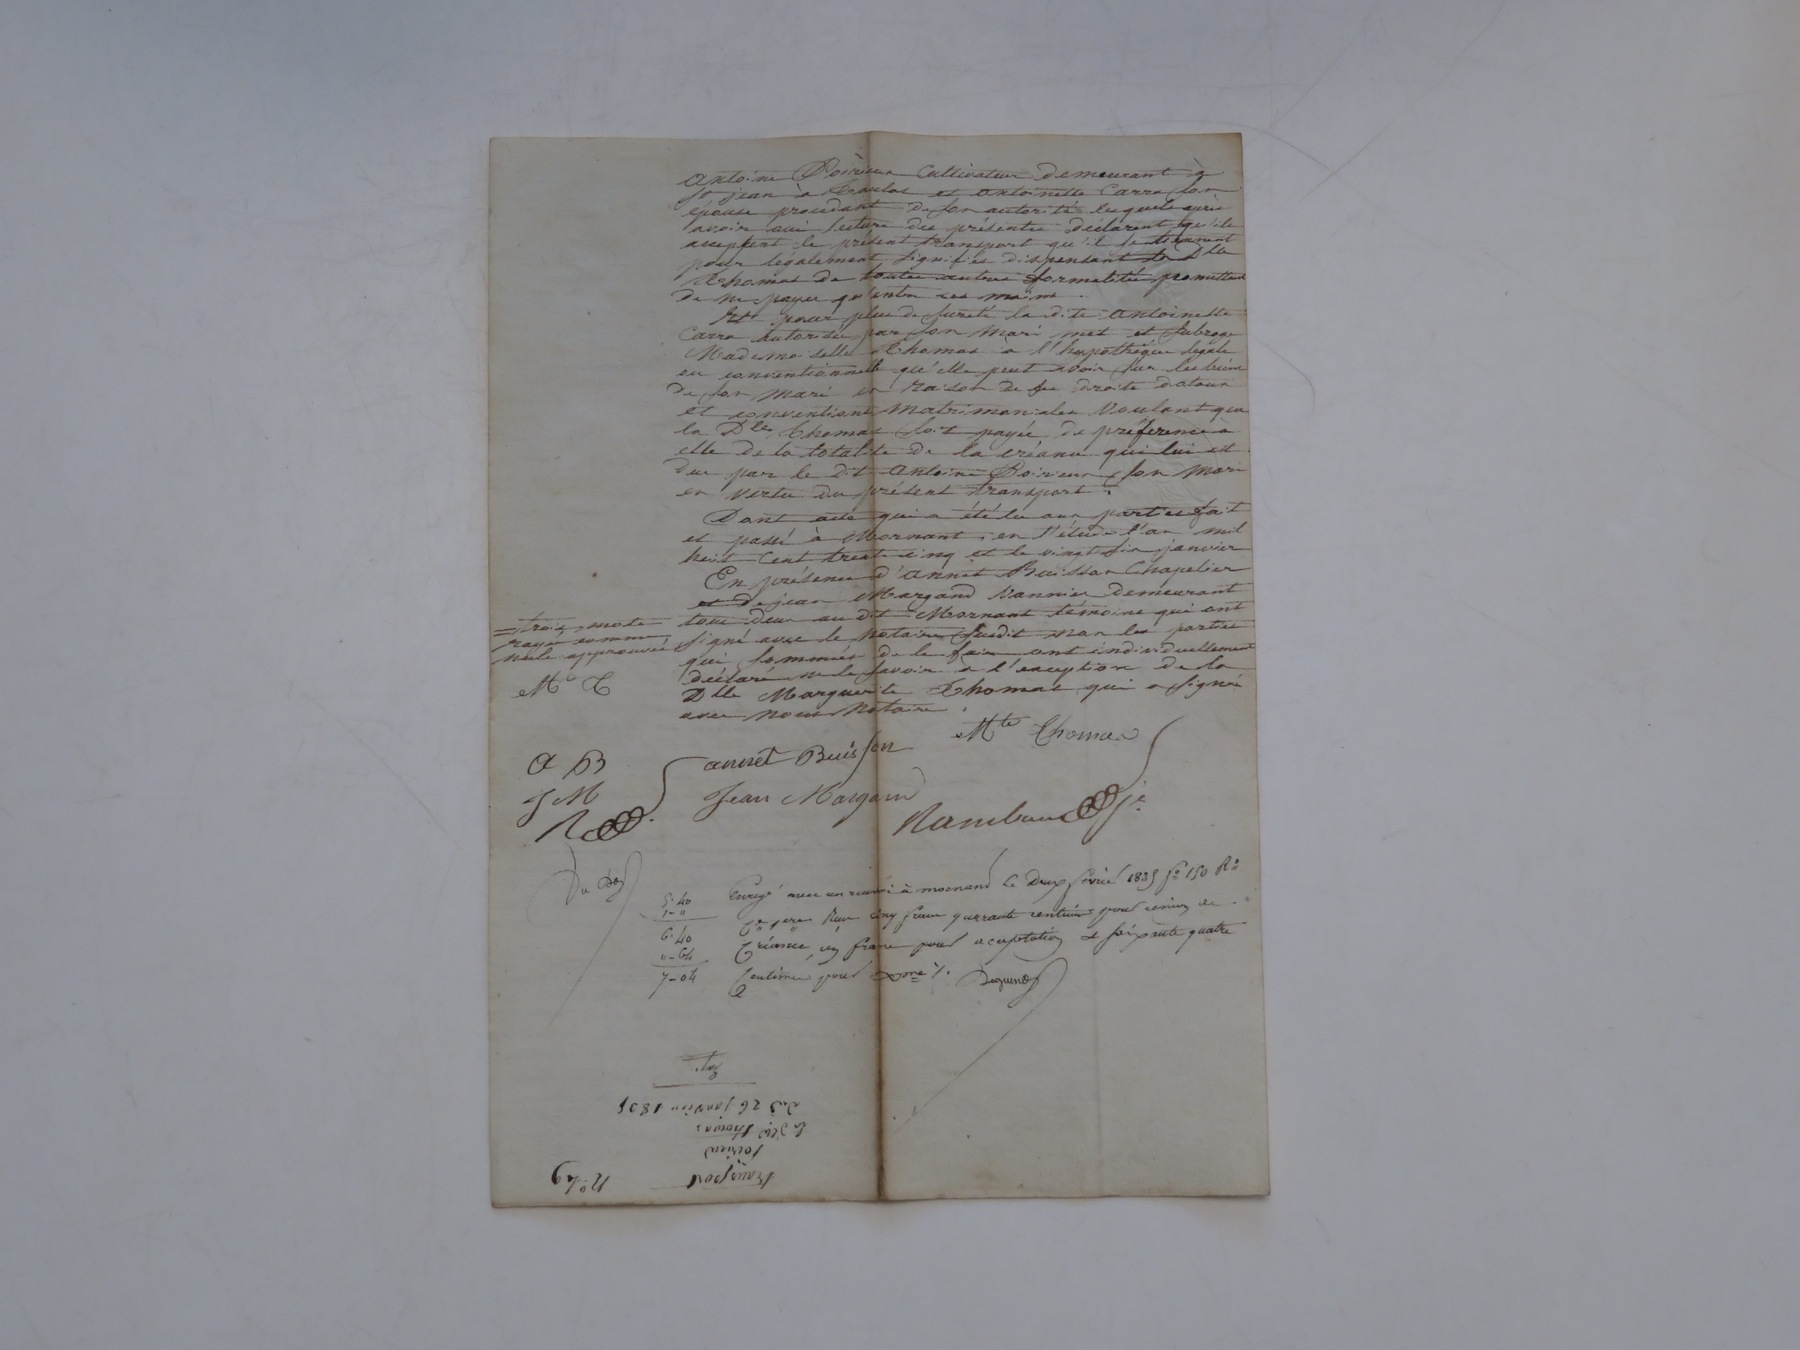 Antoine Poirieux Cultivateur demeurant à
St jean à Toulas et Antoinette Carra son
épouse procédant de son autorité lesquels après
avoir oui lecture des présentes déclarent qu'ils
acceptent le présent transport qu'il se tiennent
pour légalement signifiés dispensant la Dlle
Thomas de toutes autres formalités promettant
de ne payer qu'entre ses mains.
Et pour plus de sureté la dite Antoinette
Carra autorisée par son mari met et subroge
Mademoiselle Thomas à l'hypothèque légale
ou conventionnelle qu'elle peut avoir sur les biens
de son mari en raison de ses droits dotaux
et conventions matrimoniales voulant que
la Dlle Thomas soit payée de préférence à
elle de la totalité de la créance qui lui est
due par le dit Antoine Poirieux son mari
en vertu du présent transport.
Dont acte qui a été lu aux parties fait
et passé à Mornant, en l'étude l'an mil
huit cent trente cinq et le vingt six janvier
En présence d'Annet Buisson Chapelier
et de jean Margand Vannier demeurant
tous deux au dit Mornant témoins qui ont
signé avec le notaire susdit non les parties
qui sommées de le faire ont individuellement
déclaré ne le savoir à l'exception de la
Dlle Marguerite Thomas qui a signé
avec nous Notaire.
= trois mots
rayés comme
nuls approuvé
Mte T
Mte Thomas
A B
annet Buisson
J M
Jean Margand
R
Rambaud je
5-40
1-"
6-40
"-64
7-04
Enregé avec un renvoi à mornand le deux février 1835 fo 150 Ro
Cse reçu cinq francs quarante centimes pour cession de
Créance, un franc pour acceptation & soixante quatre
Centimes pour Dme %.
No 49
Transport
poirieux
à Dlle Thomas
du 26 janvier 1835